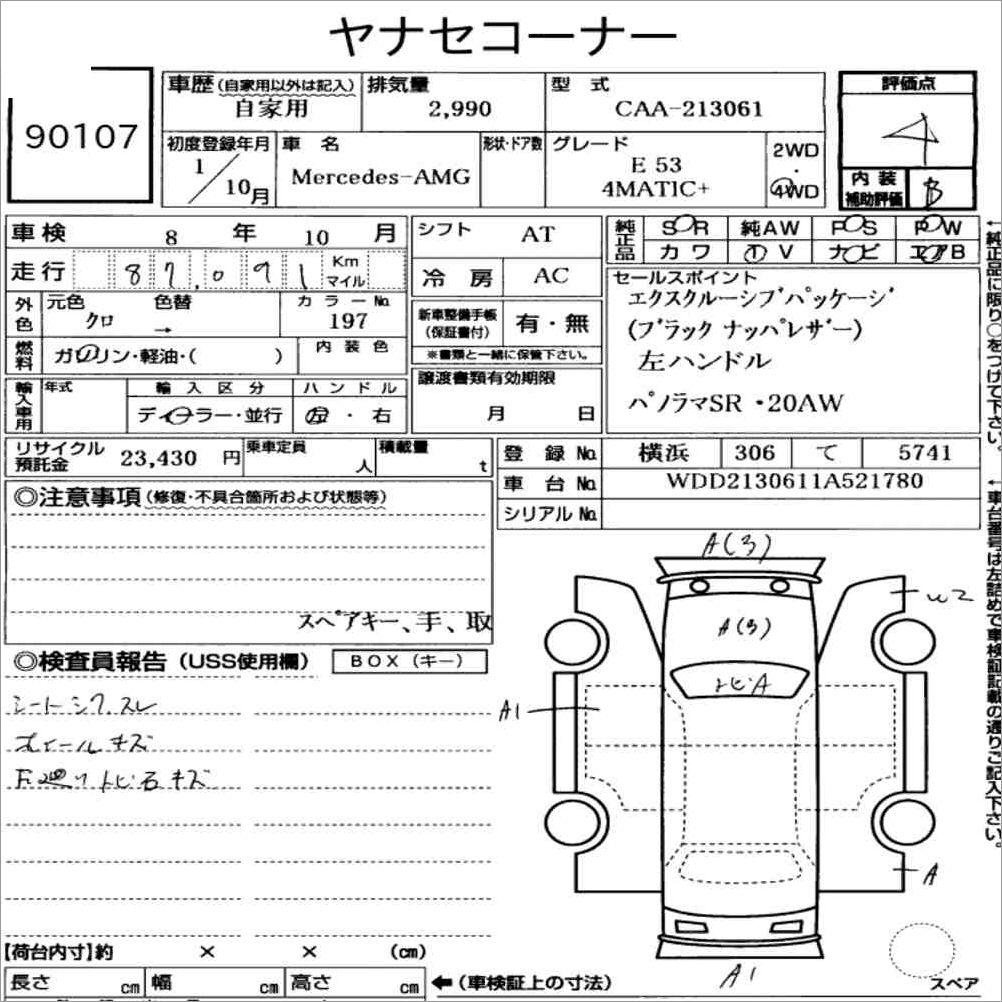 ヤナセコーナー
90107
車歴(自家用以外は記入) 自家用
排気量 2,990
型式 CAA-213061
評価点 4
初度登録年月 1/10月
車名 Mercedes-AMG
形状・ドア数
グレード E 53 4MATIC+
2WD・4WD
内装補助評価 B
車検 8年 10月
シフト AT
純正品 SR 純AW PS PW
カワ TV ナビ エアB
走行 87,091 Km マイル
冷房 AC
セールスポイント
エクスクルーシブパッケージ
(ブラックナッパレザー)
左ハンドル
パノラマSR・20AW
外色 元色 クロ 色替 →
カラーNo. 197
新車整備手帳(保証書付) 有・無
※書類と一緒に保管下さい。
燃料 ガソリン・軽油・( )
内装色
輸入車用 年式
輸入区分 ディーラー・並行
ハンドル 左・右
譲渡書類有効期限 月 日
リサイクル預託金 23,430円
乗車定員 人
積載量 t
登録No. 横浜 306 て 5741
車台No. WDD2130611A521780
シリアルNo.
←純正品に限り○をつけて下さい。
←車台番号は左詰めで車検証記載の通りご記入下さい。
◎注意事項(修復・不具合箇所および状態等)
スペアキー、手、取
◎検査員報告(USS使用欄)
BOX(キー)
シートシワ、スレ
ホイールキズ
下廻りトビ石キズ
A(3)
A(3)
トビA
W2
A1
A
A1
スペア
【荷台内寸】約 × × (cm)
長さ cm 幅 cm 高さ cm ←(車検証上の寸法)